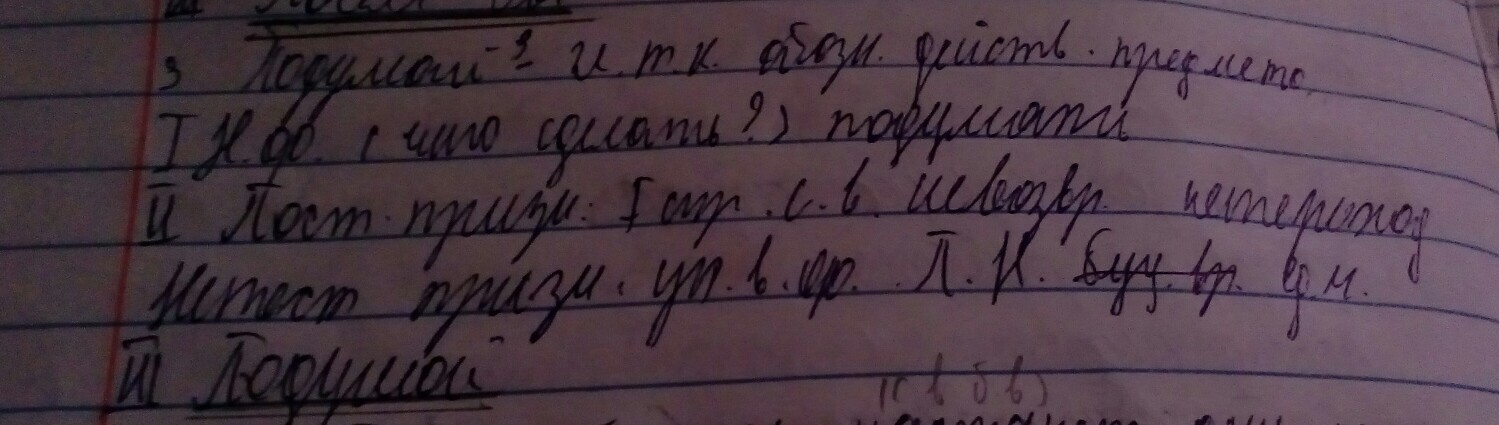 3 Подумай -3 И.т.к. обозн. действ. предмета
I Н.ф. (что сделать?) подумать
II Пост. призн. I спр. с.в. невозвр. непереход
Непост призн. уп. в. ф. П.Н. буд. вр. ед.ч.
III Подумай